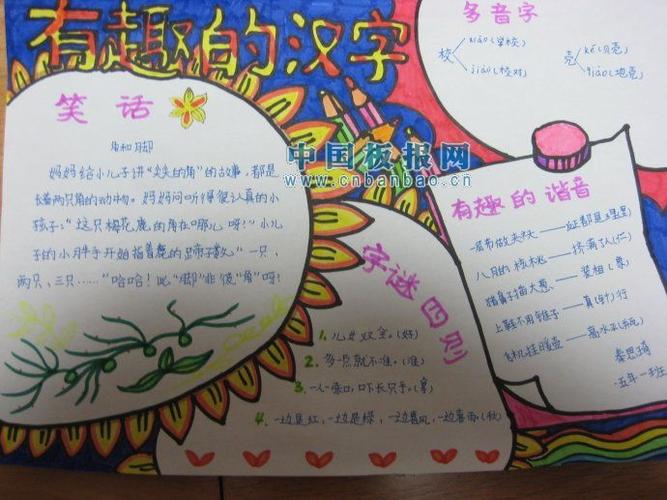 有趣的汉字
笑话
角和脚
妈妈给小儿子讲“尖尖的角”的故事，都是
长着两只角的动物。妈妈问听得很认真的小
孩子：“这只梅花鹿的角在哪儿呀？”小儿
子的小胖手开始指着鹿的蹄子数“一只、
两只、三只……”哈哈！此“脚”非彼“角”呀！
多音字
校
xiào(学校)
jiào(校对)
壳
ké(贝壳)
qiào(地壳)
中国板报网
www.cnbanbao.cn
有趣的谐音
一层布做夹袄——
八月的核桃——挤满了人(仁)
猪鼻子插大葱——装相(象)
上鞋不用锥子——真(针)行
飞机挂暖壶——高水瓶
秦思琦
五年一班
字谜四则
1、儿女双全。(好)
2、多一点就不准。(准)
3、一人一张口，口下长只手。(拿)
4、一边是红，一边是绿，一边喜风，一边喜雨。(秋)